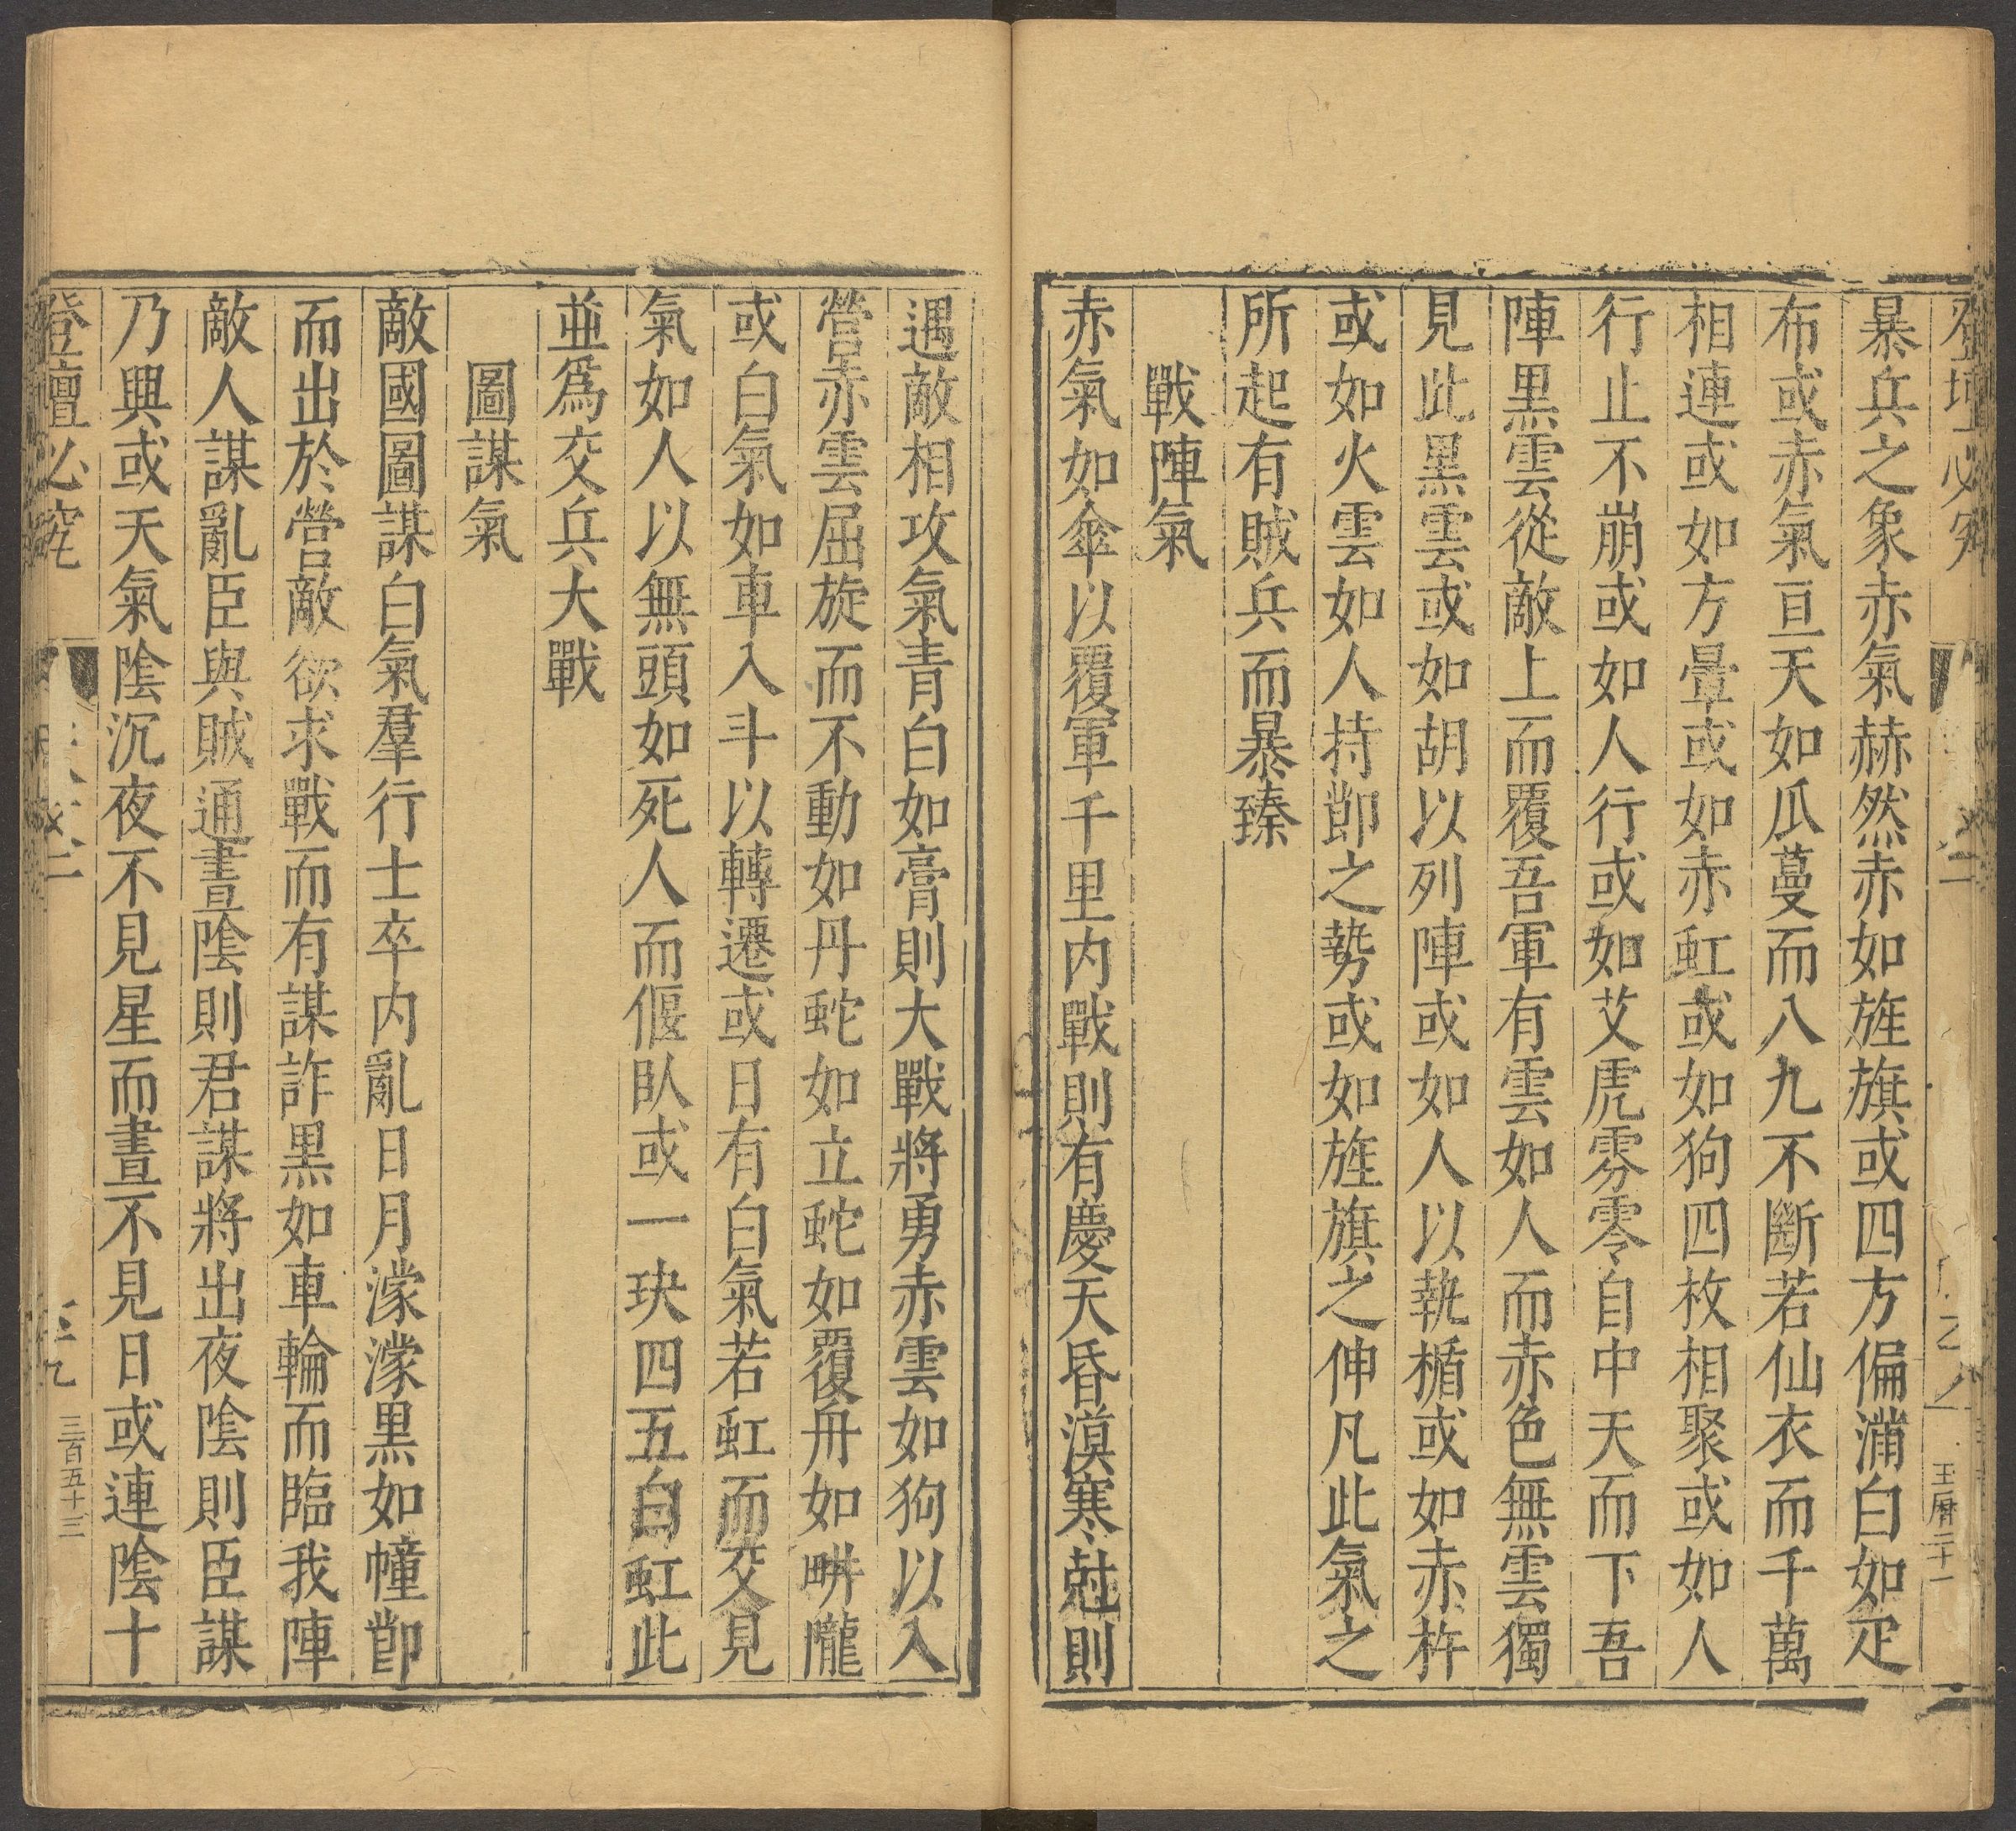 暴兵之象赤氣赫然赤如旌旗或四方偏滿白如疋
布或赤氣亘天如瓜蔓而八九不斷若仙衣而千萬
相連或如方暈或如赤虹或如狗四枚相聚或如人
行止不崩或如人行或如艾虎雰零自中天而下吾
陣黑雲從敵上而覆吾軍有雲如人而赤色無雲獨
見此黑雲或如胡以列陣或如人以執楯或如赤杵
或如火雲如人持𨚫之勢或如旌旗之伸凡此氣之
所起有賊兵而暴臻
戰陣氣
赤氣如傘以覆軍千里内戰則有慶天昏漠寒尅則
遇敵相攻氣青白如膏則大戰將勇赤雲如狗以入
營赤雲屈旋而不動如丹蛇如立蛇如覆舟如畊隴
或白氣如車入斗以轉遷或日有白氣若虹而交見
氣如人以無頭如死人而偃臥或一玦四五白虹此
並爲交兵大戰
圖謀氣
敵國圖謀白氣羣行士卒内亂日月濛濛黑如幢節
而出於營敵欲求戰而有謀詐黑如車輪而臨我陣
敵人謀亂臣與賊通晝陰則君謀將出夜陰則臣謀
乃興或天氣陰沉夜不見星而晝不見日或連陰十
登壇必究
二
三百五十三